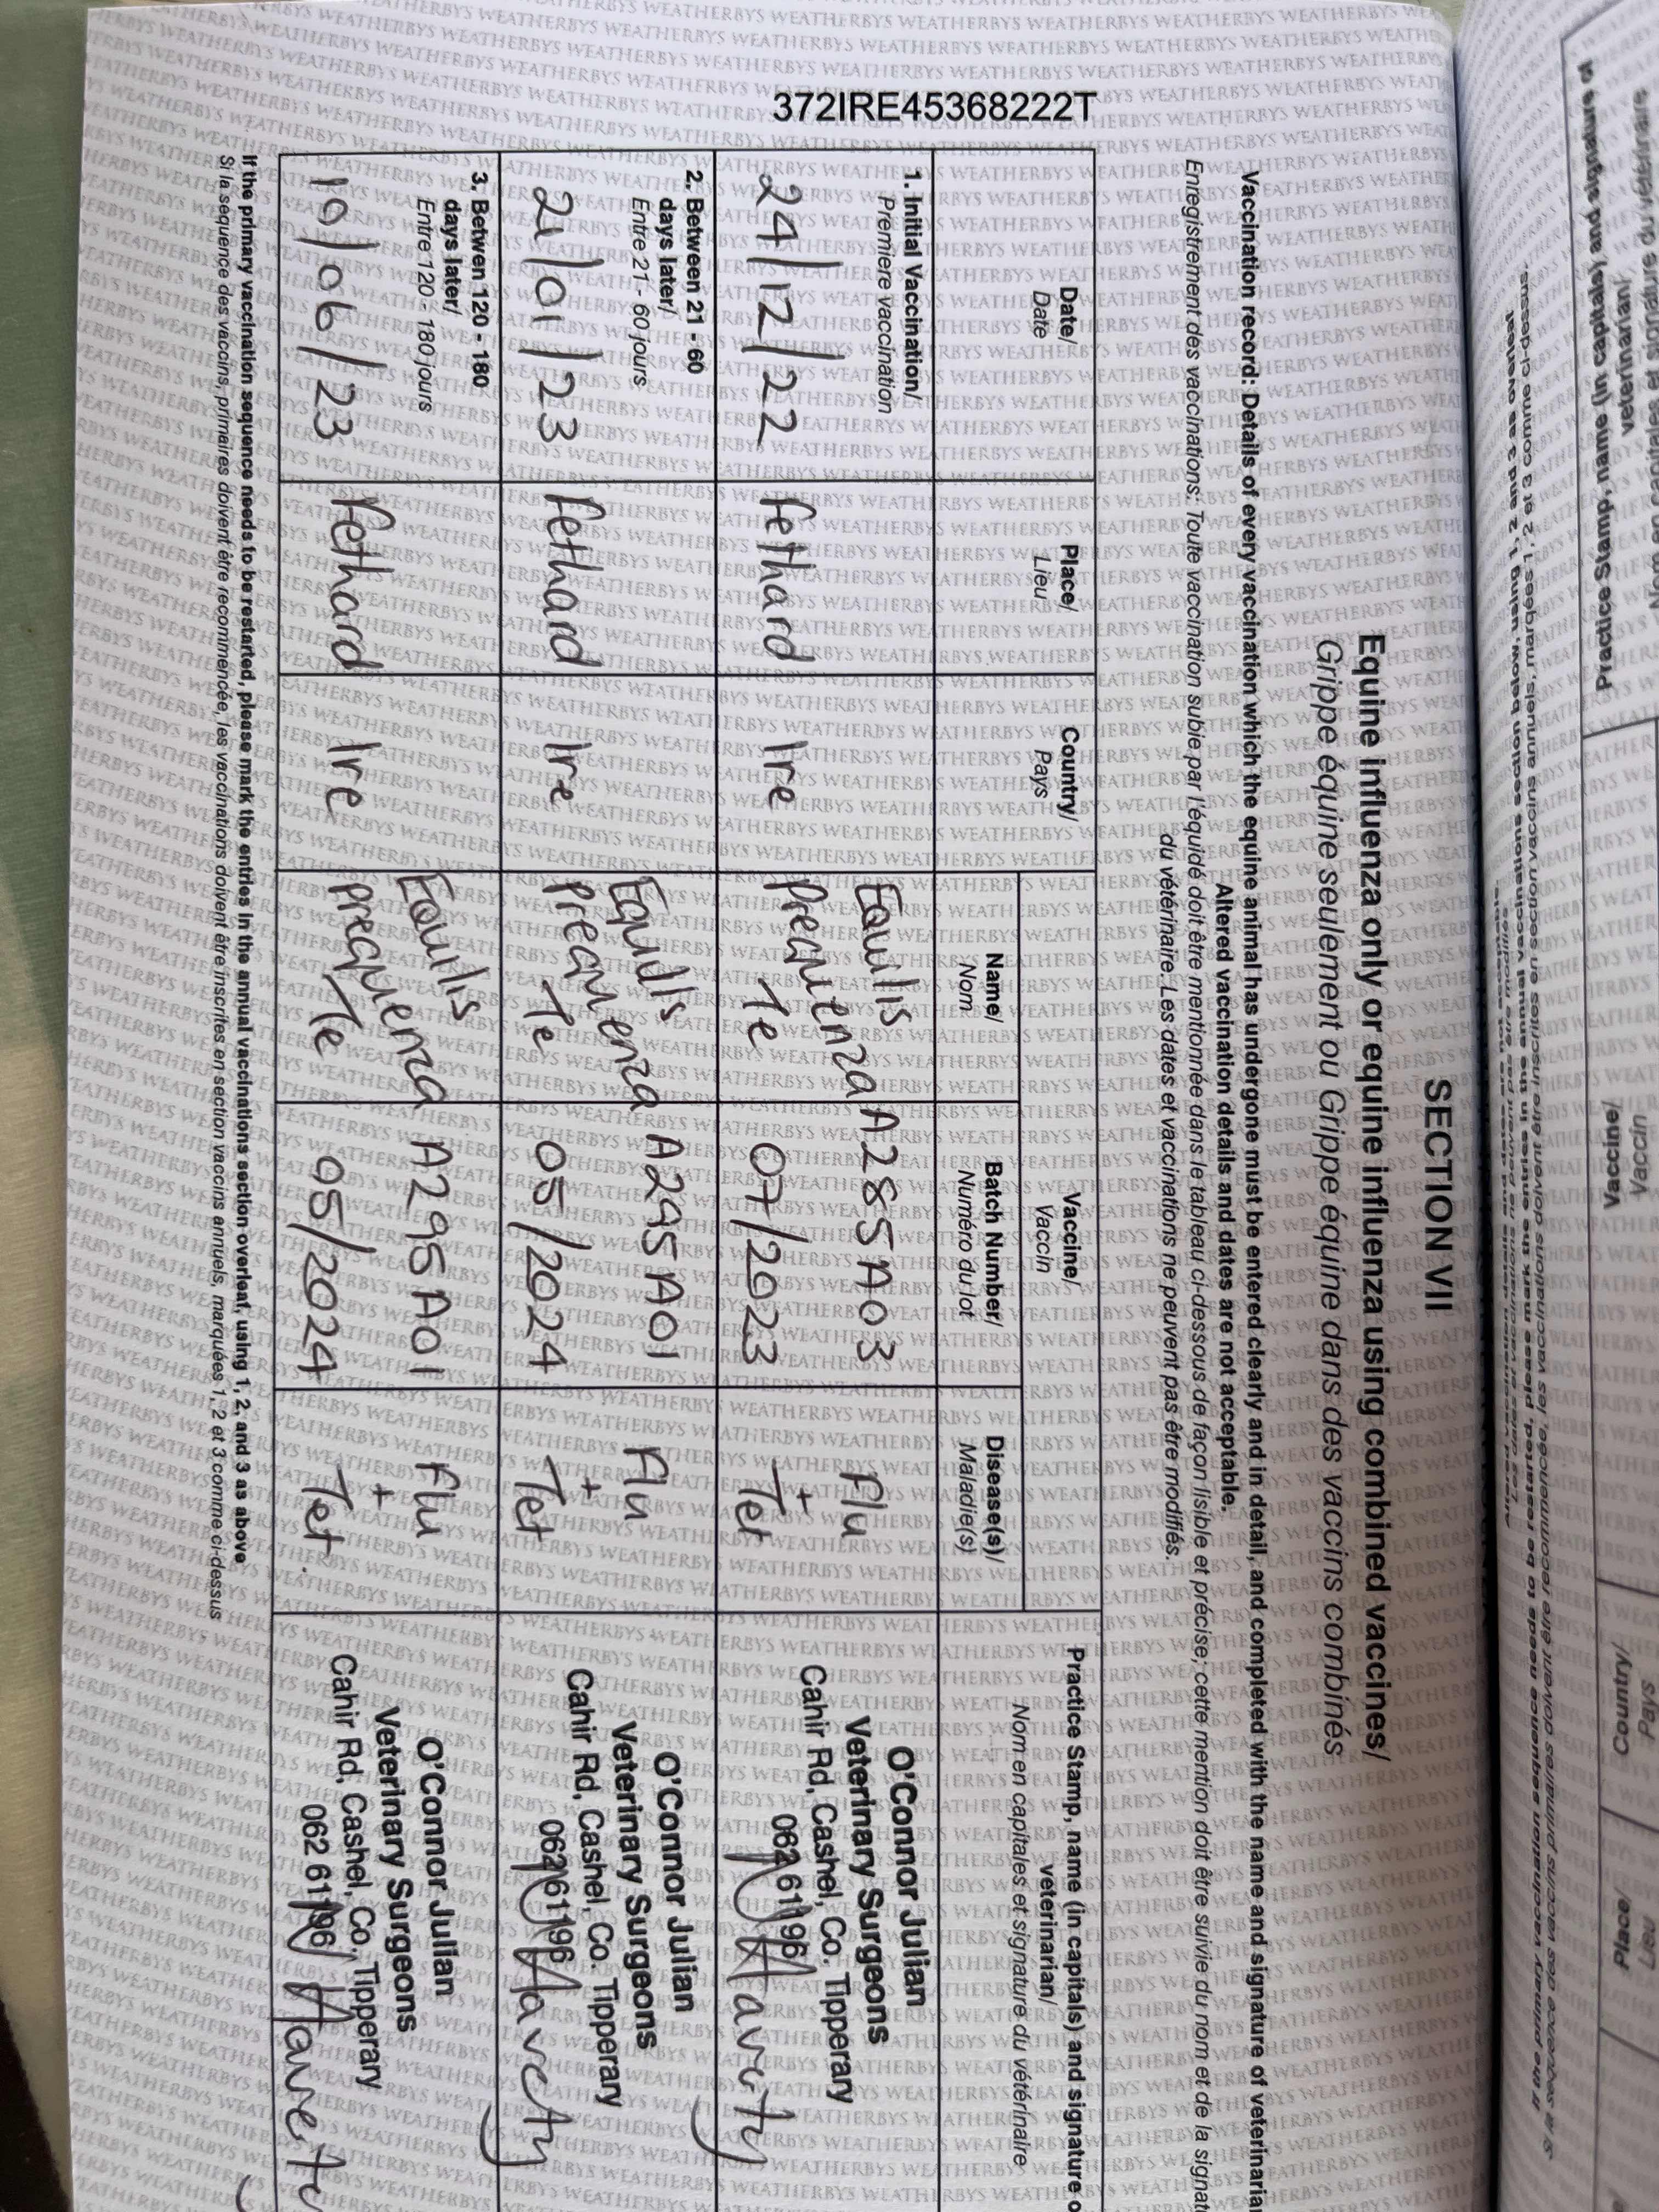 372IRE45368222T
SECTION VII
Equine influenza only or equine influenza using combined vaccines/
Grippe équine seulement ou Grippe équine dans des vaccins combinés
Vaccination record: Details of every vaccination which the equine animal has undergone must be entered clearly and in detail, and completed with the name and signature of veterinarian
Altered vaccination details and dates are not acceptable.
Enregistrement des vaccinations: Toute vaccination subie par l'équidé doit être mentionnée dans le tableau ci-dessous de façon lisible et précise; cette mention doit être suivie du nom et de la
du vétérinaire. Les dates et vaccinations ne peuvent pas être modifiés.
Date/
Date
Place/
Lieu
Country/
Pays
Vaccine/
Vaccin
Name/
Nom
Batch Number/
Numéro du lot
Disease(s)/
Maladie(s)
Practice Stamp, name (in capitals) and signature
veterinarian/
Nom en capitales et signature du vétérinaire
1. Initial Vaccination/
Premiere vaccination
24/12/22
Fethard
Ire
Equilis
Prequenza
Te
A285A03
07/2023
Flu
+
Tet
O'Connor Julian
Veterinary Surgeons
Cahir Rd, Cashel, Co. Tipperary
062 61196
2. Between 21 - 60
days later/
Entre 21 - 60 jours
21/01/23
Fethard
Ire
Equilis
Prequenza
Te
A295A01
05/2024
Flu
+
Tet
O'Connor Julian
Veterinary Surgeons
Cahir Rd, Cashel, Co. Tipperary
062 61196
3. Betwen 120 - 180
days later/
Entre 120 - 180 jours
19/06/23
Fethard
Ire
Equilis
Prequenza
Te
A295A01
05/2024
Flu
+
Tet.
O'Connor Julian
Veterinary Surgeons
Cahir Rd, Cashel, Co. Tipperary
062 61196
If the primary vaccination sequence needs to be restarted, please mark the entries in the annual vaccinations section overleaf, using 1, 2, and 3 as above
Si la séquence des vaccins primaires doivent être recommencée, les vaccinations doivent être inscrites en section vaccins annuels, marquées 1, 2 et 3 comme ci-dessus
Practice Stamp, name (in capitals) and signature of
veterinarian/
Vaccine/
Vaccin
Country/
Pays
Place/
Lieu